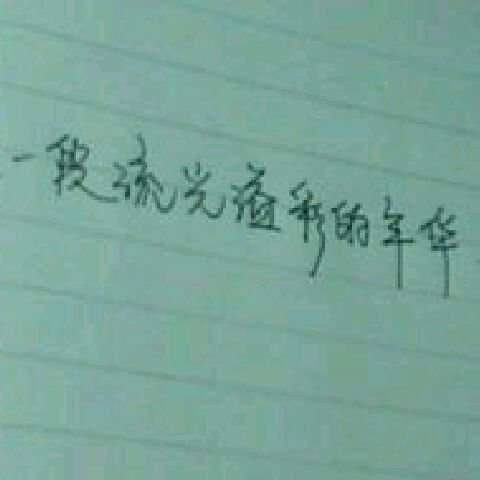 一段流光溢彩的年华